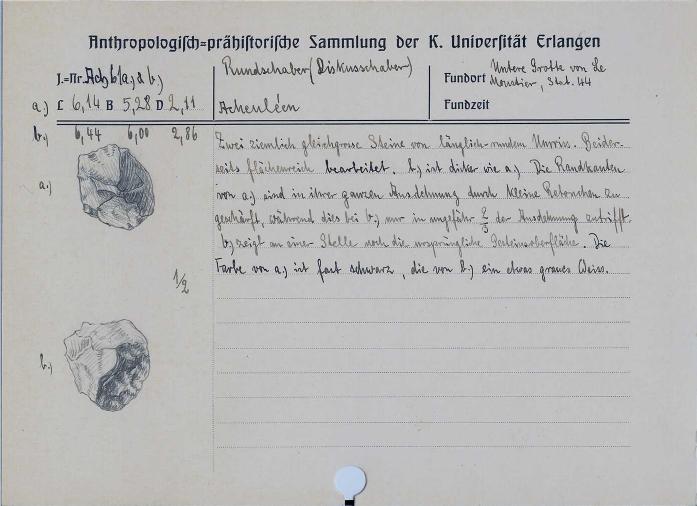 Anthropologisch=prähistorische Sammlung der K. Universität Erlangen
J.=Nr. Ach 6 (a, & b,)
Rundschaber (Diskusschaber)
Fundort Untere Grotte von Le Moustier, Stat. 44
a.) L 6,14 B 5,28 D 2,11
Acheuléen
Fundzeit
b.) 6,44 6,00 2,86
Zwei ziemlich gleichgrosse Steine von länglich-rundem Umriss. Beider-
seits flächenreich bearbeitet. b.) ist dicker wie a.) Die Randkanten
von a.) sind in ihrer ganzen Ausdehnung durch kleine Retouchen zu
geschärft, während dies bei b.) nur in ungefähr 2/3 der Ausdehnung zutrifft.
b.) zeigt an einer Stelle noch die ursprüngliche Gesteinsoberfläche. Die
Farbe von a.) ist fast schwarz, die von b.) ein etwas graues Weiss.
a.)
1/2
b.)